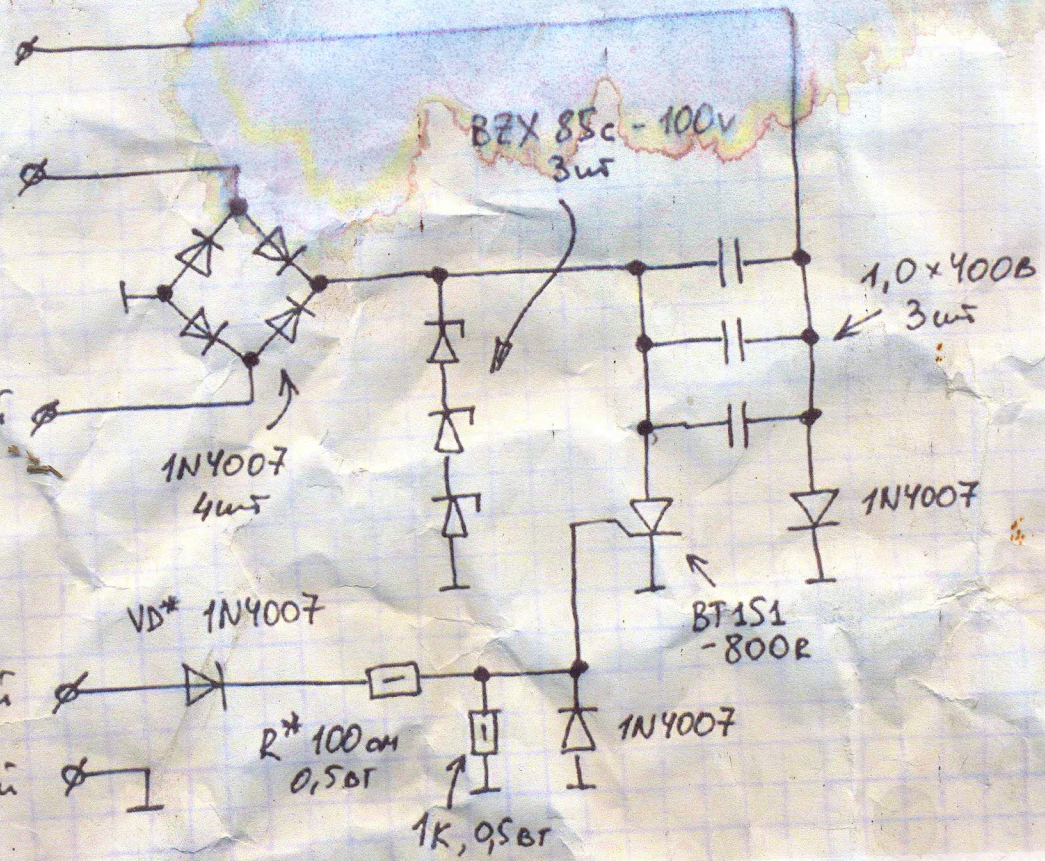 BZX 85c - 100v
3шт
1,0 x 400В
3шт
й
1N4007
4шт
1N4007
VD* 1N4007
BT151
-800R
й
R* 100 ом
0,5вт
1N4007
й
1к, 0,5вт